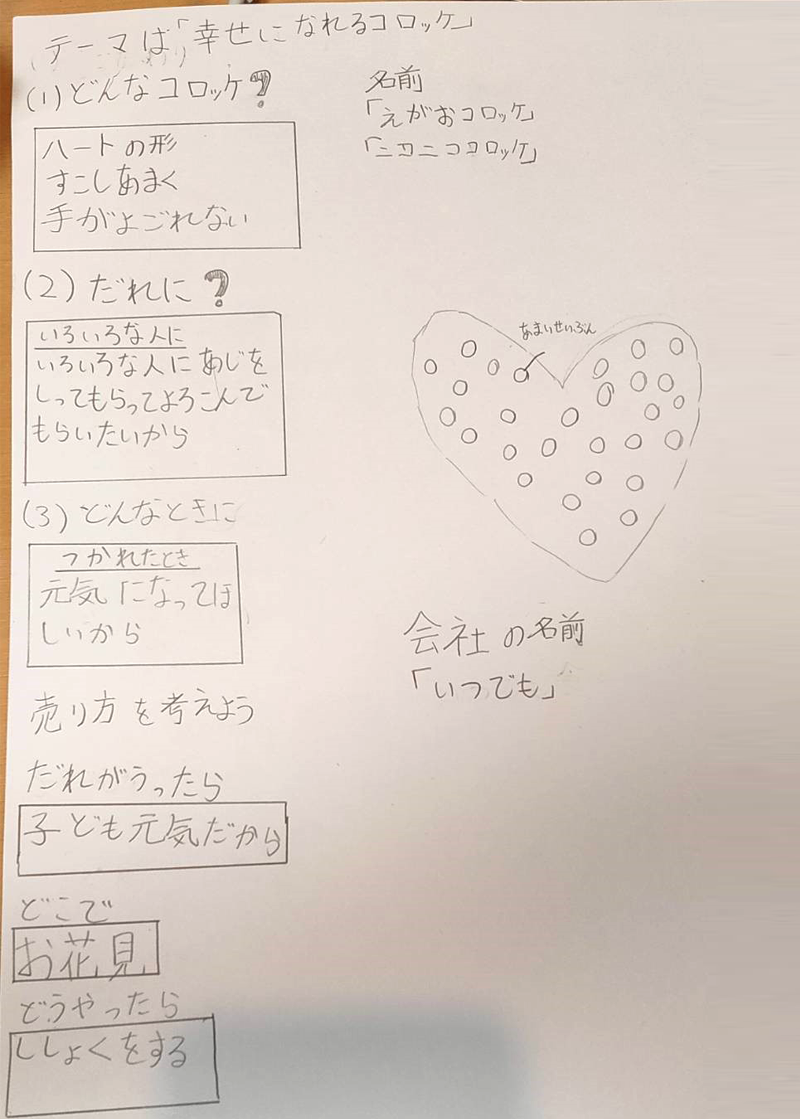 テーマは「幸せになれるコロッケ」
(1)どんなコロッケ?
ハートの形
すこしあまく
手がよごれない
(2)だれに?
いろいろな人に
いろいろな人にあじを
しってもらってよろこんで
もらいたいから
(3)どんなときに
つかれたとき
元気になってほ
しいから
売り方を考えよう
だれがうったら
子ども元気だから
どこで
お花見
どうやったら
ししょくをする
名前
「えがおコロッケ」
「ニコニココロッケ」
あまいせいぶん
会社の名前
「いつでも」